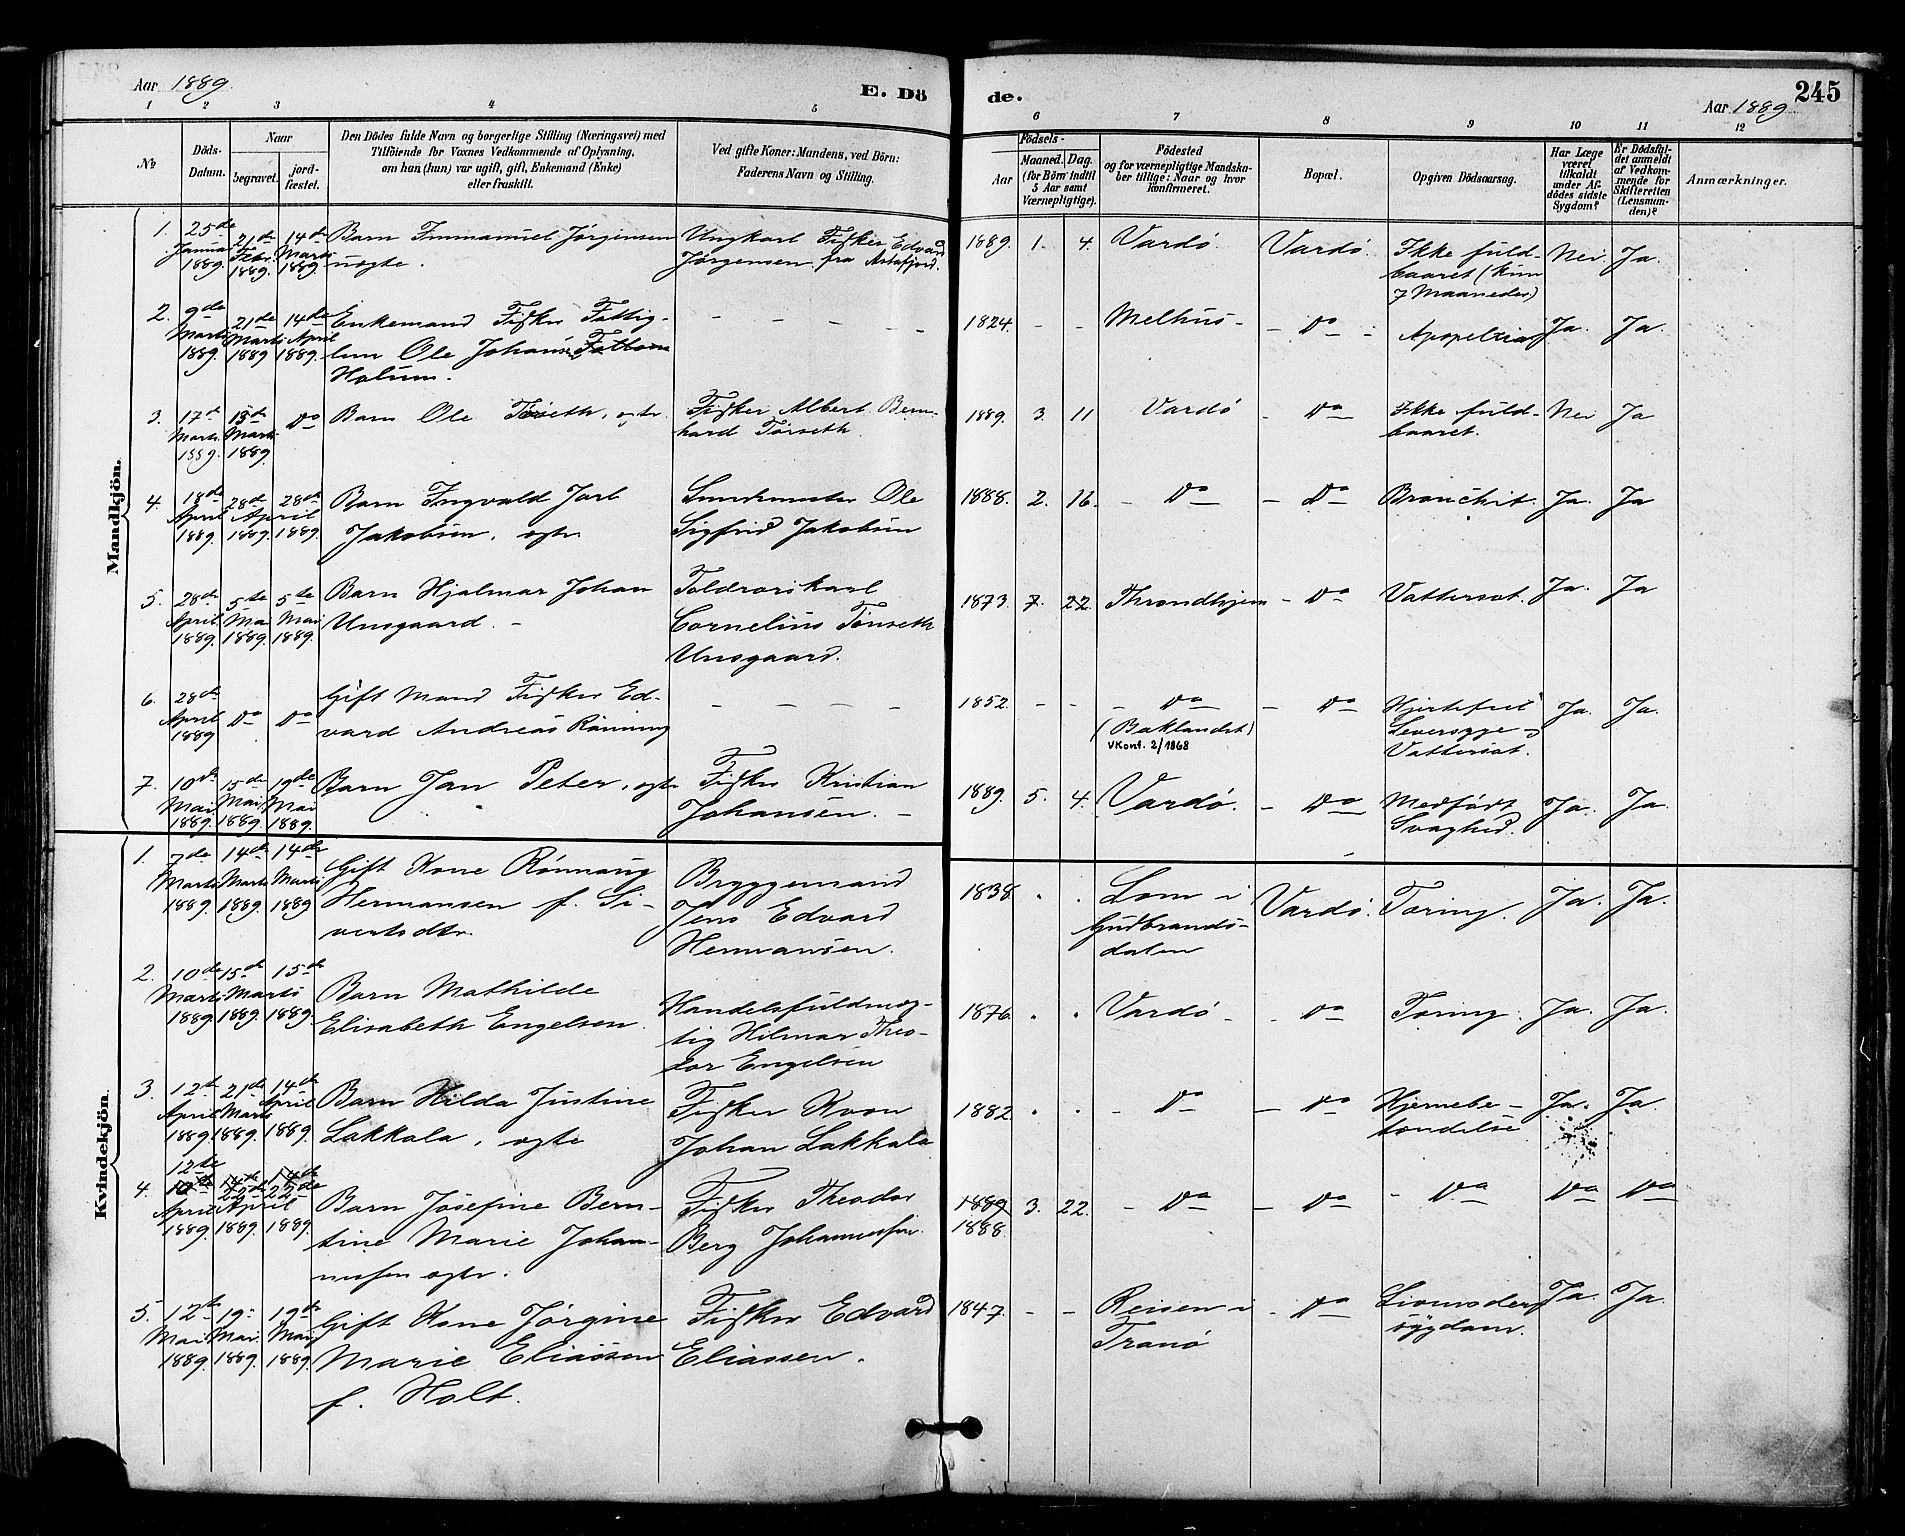 Aar 1889.
E. Dö
de.
245
Aar 1889
1 2 3 4 5 6 7 8 9 10 11 12
No
Döds-Datum.
Naar
begravet.
jord-fæstet.
Den Dödes fulde Navn og borgerlige Stilling (Næringsvei) med
Tilföiende for Voxnes Vedkommende af Oplysning,
om han (hun) var ugift, gift, Enkemand (Enke)
eller fraskilt.
Ved gifte Koner: Mandens, ved Börn:
Faderens Navn og Stilling.
Födsels-
Aar
Maaned. Dag.
(for Börn indtil
5 Aar samt
Værnepligtige).
Födested
og for værnepligtige Mandska-
ber tillige: Naar og hvor
konfirmeret.
Bopæl.
Opgiven Dödsaarsag.
Har Læge
været
tilkaldt
under Af-
dödes sidste
Sygdom?
Er Dödsfal-
det anmeldt
af Vedkom-
mende for
Skifteretten
(Lensman-
den)?
Anmærkninger.
Mandkjön.
1. 25de Januar 1889. 21de Febr. 1889. 14de Marts 1889. Barn Immanuel Jørgensen uægte. Ungkarl Fisker Edvard Jørgensen fra Astafjord. 1889. 1. 4. Vardö. Vardö. Ikke fuld-baaret (kun 7 Maaneder) Nei. Ja.
2. 9de Marts 1889. 21de Marts 1889 14de April 1889. Enkemand Fisker Fattig-lem Ole Johans. Holum. - - - - 1824. - - Melhus - - Do - Apoplexia Ja. Ja.
3. 17de Marts 1889. 15de Marts 1889. Do Barn Ole Tørseth, ægte Fisker Albert Bern-hard Tørseth. 1889. 3. 11 Vardö - Do - Ikke fuld-baaret. Nei Ja
4. 18de April 1889. 28de April 1889. 28de April 1889. Barn Ingvald Jarl Jakobsen, ægte. Ole Sigfrid Jakobsen 1888. 2. 16. - Do - - Do Bronchit. Ja. Ja
5. 28de April 1889. 5te Mai 1889. 5te Mai 1889. Barn Hjalmar Johan Unsgaard. - Toldrorskarl Cornelius Tønseth Unsgaard. 1873. 7. 22. Throndhjem - Do - Vattersot. Ja. Ja
6. 28de April 1889 Do Do Gift Mand Fisker Ed-vard Andreas Rönning - - - - 1852. - - - Do - (Baklandet) VKonf. 2/1868 - Do Hjertefeil Leversyge Vattersot. Ja. Ja.
7. 10de Mai 1889. 15de Mai 1889. 19de Mai 1889. Barn Jan Peter, ægte Fisker Kristian Johansen. - 1889. 5. 4. Vardö. - Do - Medfödt Svaghed. Ja. Ja.
Kvindekjön.
1. 7de Marts 1889. 14de Marts 1889. 14de Marts 1889 Gift Kone Rönnaug Hermansen f. Si-vertsdtr. Bryggemand Jens Edvard Hermansen. 1838. Lom i Gudbrands-dalen Vardö. Tæring. Ja. Ja.
2. 10de Marts 1889. 15de Marts 1889. 15de 1889. Barn Mathilde Elisabeth Engelsen. Handelsfuldmæg-tig Hilmar Theo-dor Engelsen 1876. Vardö - - Do Tæring. Ja. Ja.
3. 12te April 1889. 21de Marts 1889. 14de April 1889. Barn Hilda Justine Lakkala, ægte Fisker Johan Lakkala 1882. - Do - - Do Hjernebe-tændelse Ja. Ja.
4. 12te April 1889. 22de April 1889. 22de 1889. Barn Josefine Bern-tine Marie Johan-nesen ægte. Fisker Theodor Berg Johannesen. 1889 1888. 3. 22. - Do - - Do - - Do Do Do
5. 12te Mai 1889. 19- Mai. 1889. 19de Mai 1889. Gift Kone Jørgine Marie Eliassen f. Holt. Fisker Edvard Eliassen. 1847. - - Reisen i Tranö - Do Ja. Ja.